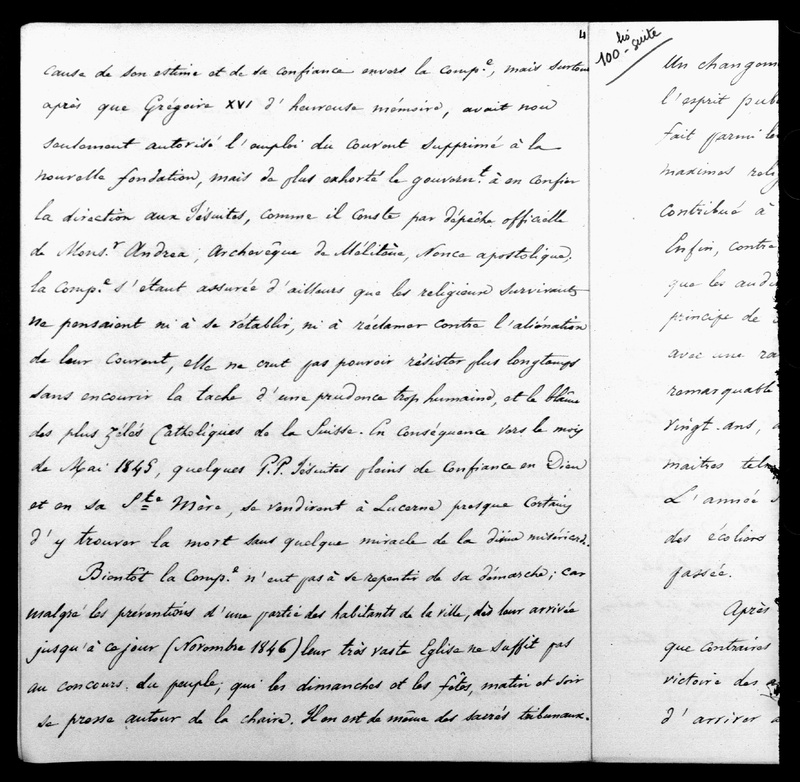 4
cause de son estime et de sa confiance envers la Comp.e, mais surtout
après que Grégoire XVI d'heureuse mémoire, avait non
seulement autorisé l'emploi du couvent supprimé à la
nouvelle fondation, mais de plus exhorté le gouvern.t à en confier
la direction aux Jésuites, comme il conste par dépêche officielle
de Mons.r Andrea, Archevêque de Mélitène, Nonce apostolique;
la Comp.e s'étant assurée d'ailleurs que les religieux survivants
ne pensaient ni à se rétablir, ni à réclamer contre l'aliénation
de leur couvent, elle ne crut pas pouvoir résister plus longtemps
sans encourir la tache d'une prudence trop humaine, et le blâme
des plus zélés Catholiques de la Suisse. En conséquence vers le mois
de Mai 1845, quelques P.P. Jésuites pleins de confiance en Dieu
et en sa Ste Mère, se rendirent à Lucerne presque certains
d'y trouver la mort sans quelque miracle de la divine miséricorde.
Bientôt la Comp.e n'eut pas à se repentir de sa démarche; car
malgré les préventions d'une partie des habitants de la ville, dès leur arrivée
jusqu'à ce jour (Novembre 1846) leur très vaste Eglise ne suffit pas
au concours du peuple, qui les dimanches et les fêtes, matin et soir
se presse autour de la chaire. Il en est de même des sacrés tribunaux.
100 bis - suite
Un changem
l'esprit publ
fait parmi les
maximes relig
contribué à
Enfin, contre
que les
principe de
avec une
remarquable
vingt-ans,
maîtres tel
L'année
des écoliers
passée.
Après
que contraires
victoire des
d'arriver